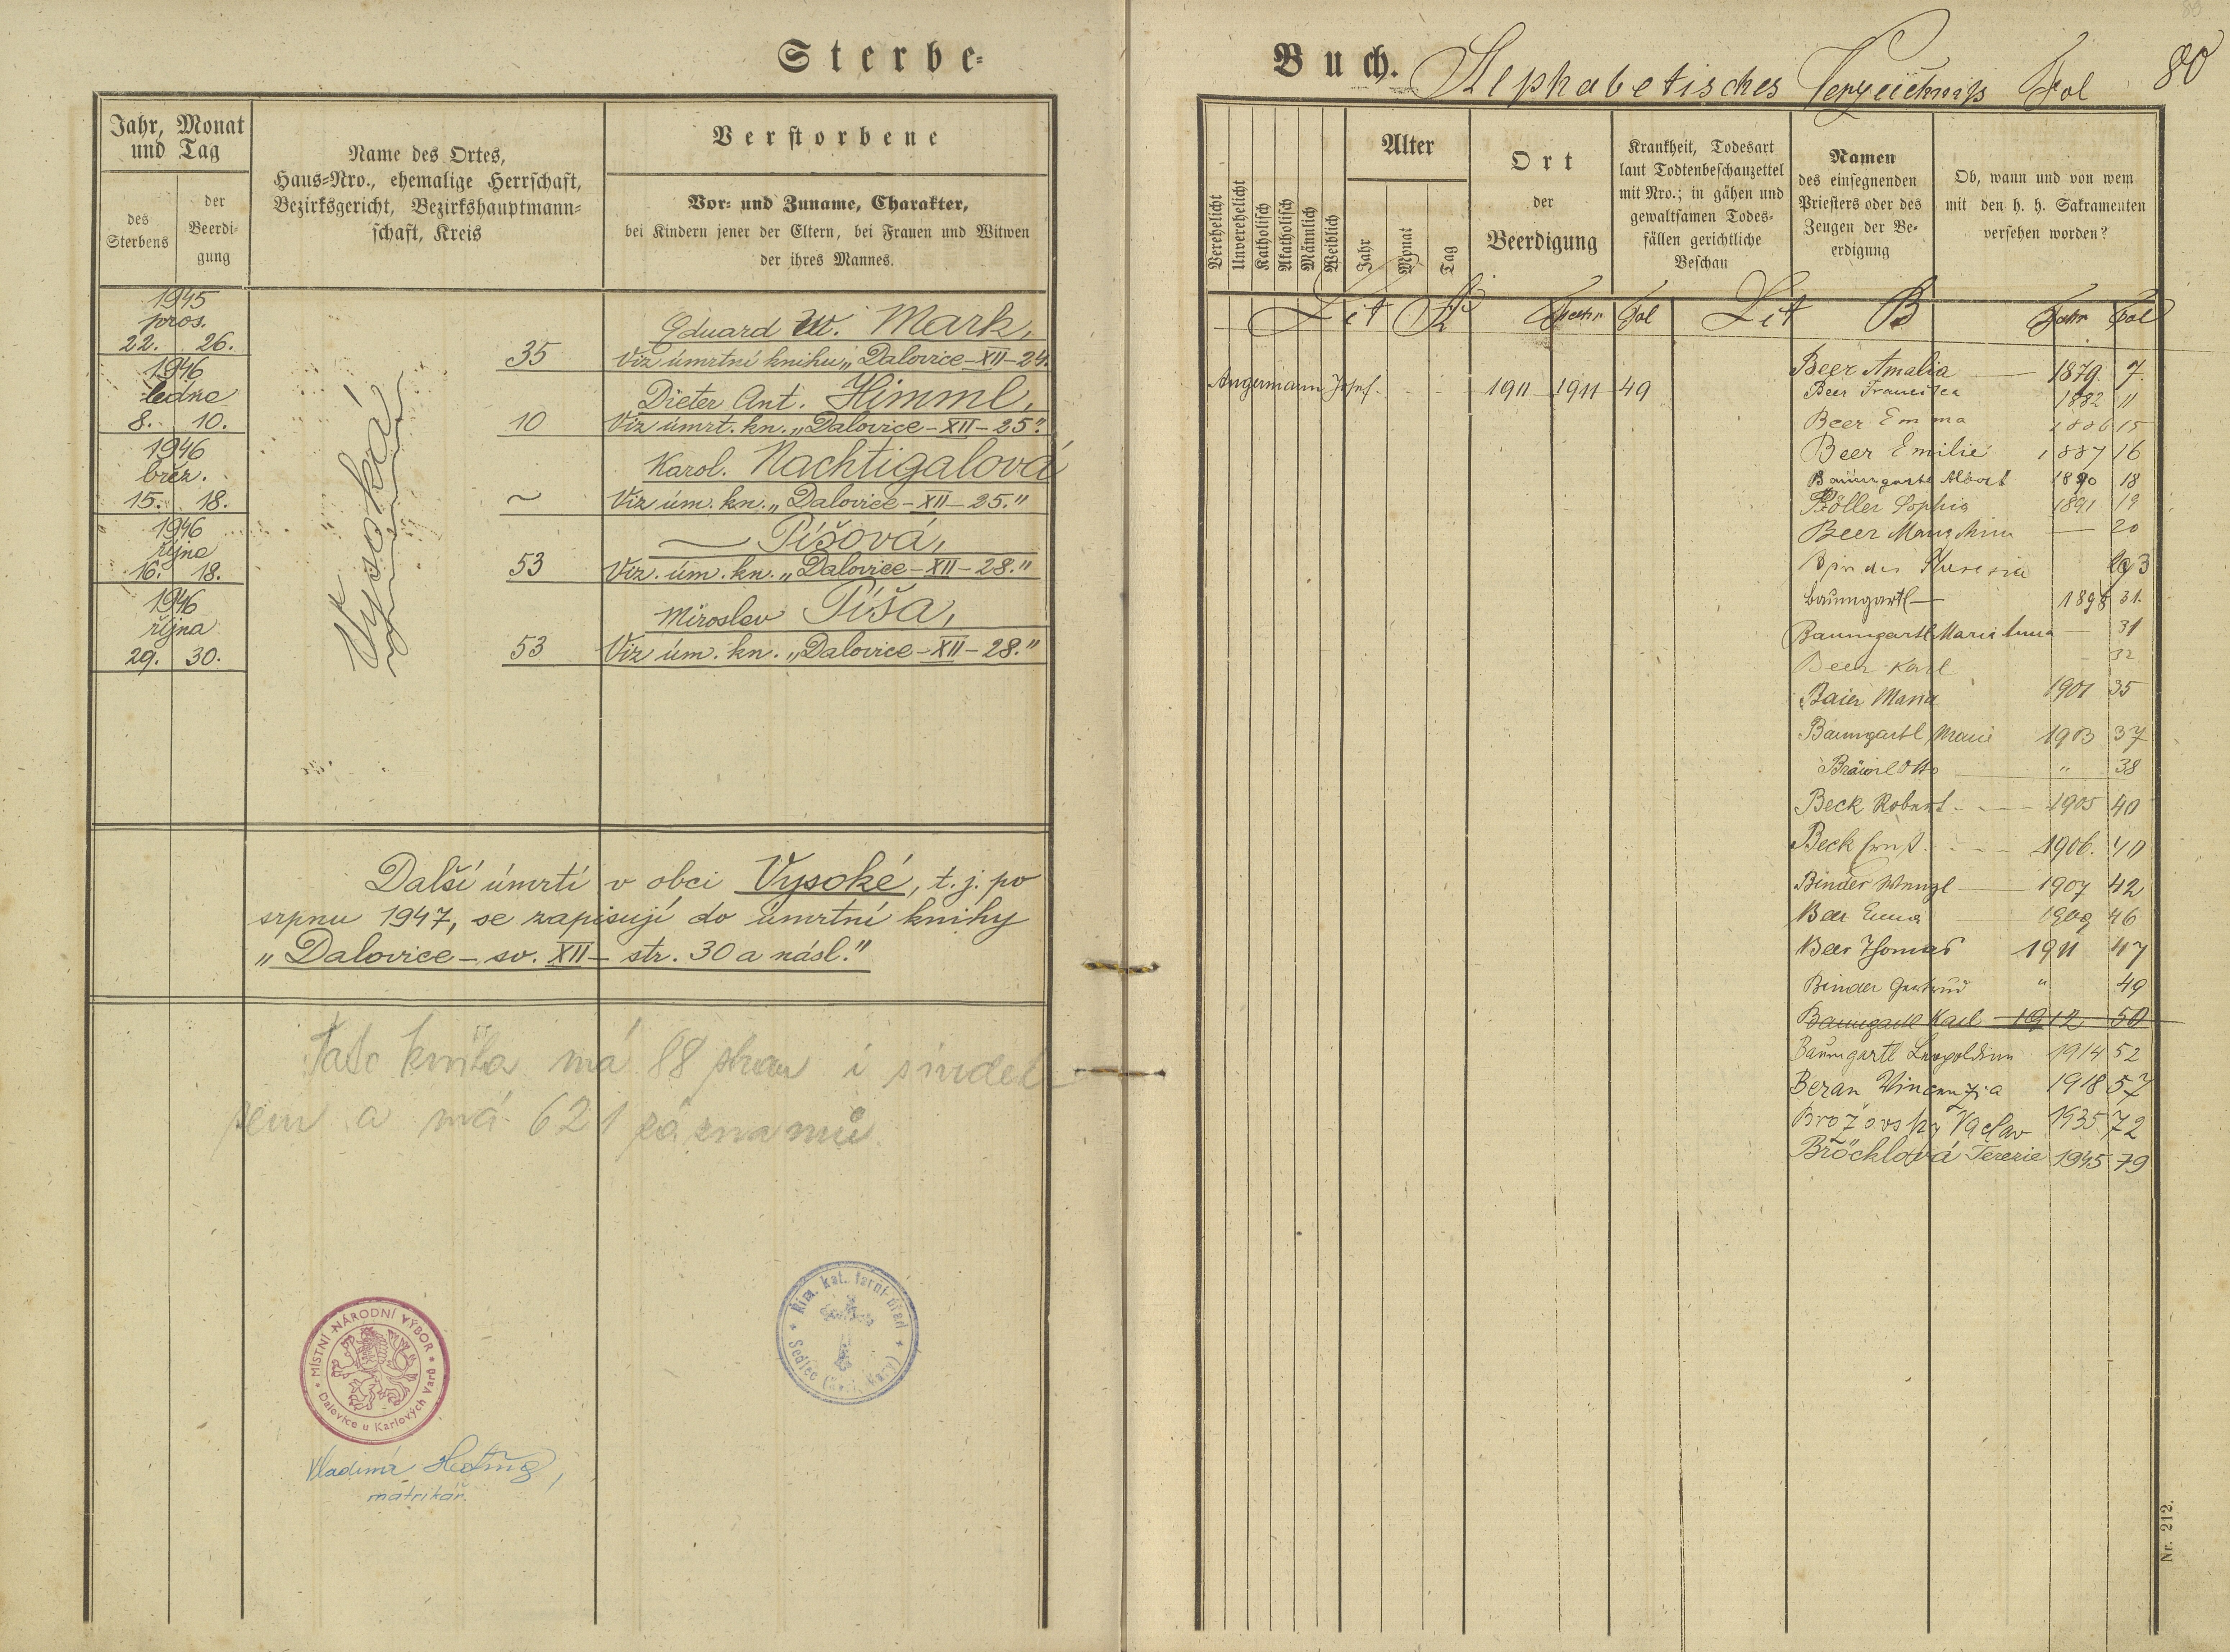 Sterbe-
Jahr, Monat
und Tag
des
Sterbens
der
Beerdi-
gung
Name des Ortes,
Haus-Nro., ehemalige Herrschaft,
Bezirksgericht, Bezirkshauptmann-
schaft, Kreis
Verstorbene
Vor- und Zuname, Charakter,
bei Kindern jener der Eltern, bei Frauen und Witwen
der ihres Mannes.
Vysoká
1945
pros.
22. 26.
35
Eduard W. Mark,
Viz úmrtní knihu „Dalovice-XII-24.
1946
ledna
8. 10.
10
Dieter Ant. Himml,
Viz úmrt. kn. „Dalovice-XII-25."
1946
břez.
15. 18.
~
Karol. Nachtigalová
Viz úm. kn. „Dalovice-XII-25."
1946
října
16. 18.
53
— Píšová,
Viz. úm. kn. „Dalovice-XII-28."
1946
října
29. 30.
53
Miroslav Píša,
Viz úm. kn. „Dalovice-XII-28."
Další úmrtí v obci Vysoké, t. j. po
srpnu 1947, se zapisují do úmrtní knihy
„Dalovice - sv. XII - str. 30 a násl."
Tato kniha má 88 stran i s index
em a má 621 záznamů
MÍSTNÍ NÁRODNÍ VÝBOR
Dalovice u Karlových Varů
Řím. kat. farní úřad
Sedlec (Karl. Vary)
Vladimír
matrikář.
Buch. Alphabetisches Verzeichniß Fol 80
Verehelicht
Unverehelicht
Katholisch
Akatholisch
Männlich
Weiblich
Alter
Jahr
Monat
Tag
Ort
der
Beerdigung
Krankheit, Todesart
laut Todtenbeschauzettel
mit Nro.; in gähen und
gewaltsamen Todes-
fällen gerichtliche
Beschau
Namen
des einsegnenden
Priesters oder des
Zeugen der Be-
erdigung
Ob, wann und von wem
mit den h. h. Sakramenten
versehen worden?
Lit A Jahr Fol
Angermann Josef. - - - 1911 1911 49
Lit B Jahr Fol
Beer Amalia 1879. 7.
Beer Francisca 1882 11
Beer Emma 1886 15
Beer Emilie 1887 16
Baumgartl Albert 1890 18
Böller Sophia 1891 19
Beer — 20
Binder
Baumgartl — 1898 31.
Baumgartl Maria Anna — 31
Beer Karl 32
Baier Maria 1901 35
Baumgartl Marie 1903 37
Bräunl Otto " 38
Beck Robert - — 1905 40
Beck Ernst - - - 1906. 40
Binder Wenzl — 1907 42
Beer Emma 1909 46
Beer Thomas 1911 47
Binder Gertrud " 49
Baumgartl Karl 1912 50
Baumgartl Leopoldine 1914 52
Beran Vincenzia 1918 57
Brožovský Vaclav 1935 72
Bröcklová Terezie 1945 79
Nr. 212.